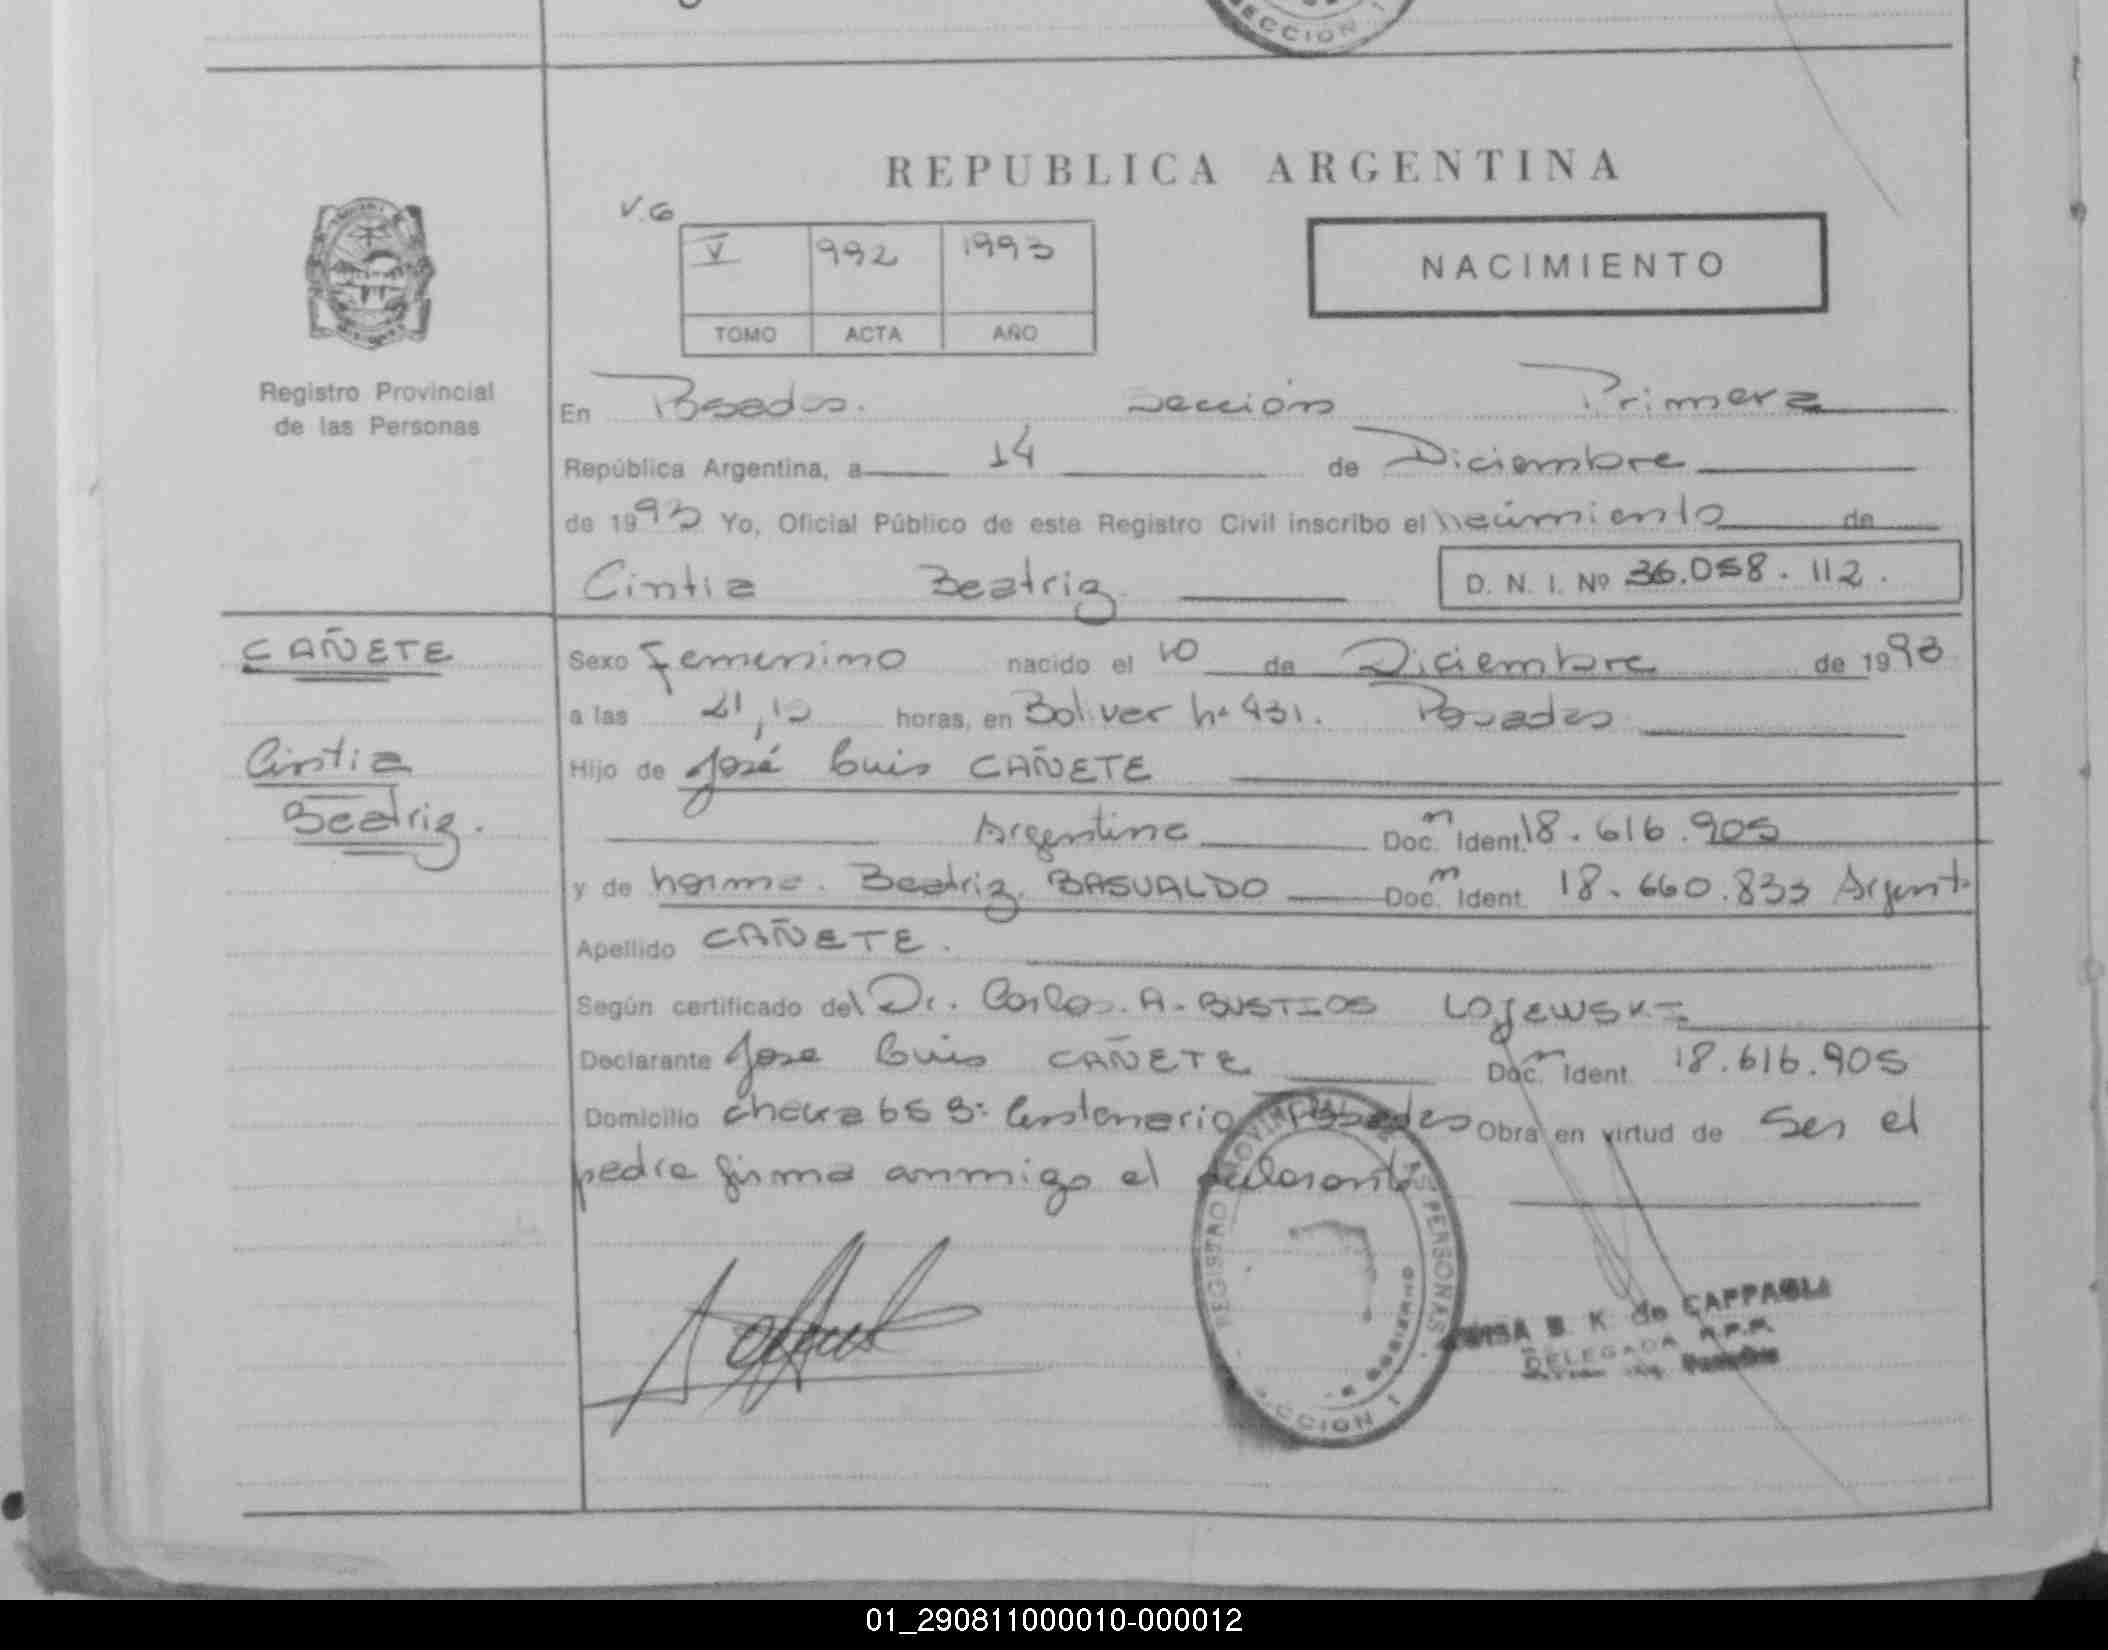 SECCION 1
REPUBLICA ARGENTINA
V.G
V 992 1993
NACIMIENTO
TOMO ACTA AÑO
Registro Provincial
de las Personas
En Posadas. Sección Primera
República Argentina, a 14 de Diciembre
de 1993 Yo, Oficial Público de este Registro Civil inscribo el nacimiento de
Cintia Beatriz
D. N. I. Nº 36.058.112.
CAÑETE
Sexo Femenino nacido el 10 de Diciembre de 1993
a las 21,10 horas, en Bolivar nº 431. Posadas
Cintia
Beatriz.
Hijo de José Luis CAÑETE
Argentina Doc. m Ident. 18.616.905
y de Norma. Beatriz. BASUALDO Doc. m Ident. 18.660.833 Argent.
Apellido CAÑETE.
Según certificado del Dr. Carlos. A. BUSTIOS LOJEWSKI
Declarante Jose Luis CAÑETE Doc. m Ident. 18.616.905
Domicilio chacra Centenario Posadas Obra en virtud de Ser el
padre firma conmigo el declarante
REGISTRO PROVINCIAL DE LAS PERSONAS
GOBIERNO
SECCION 1
B. K. de CAPPAGLI
DELEGADA R.P.P.
01_290811000010-000012